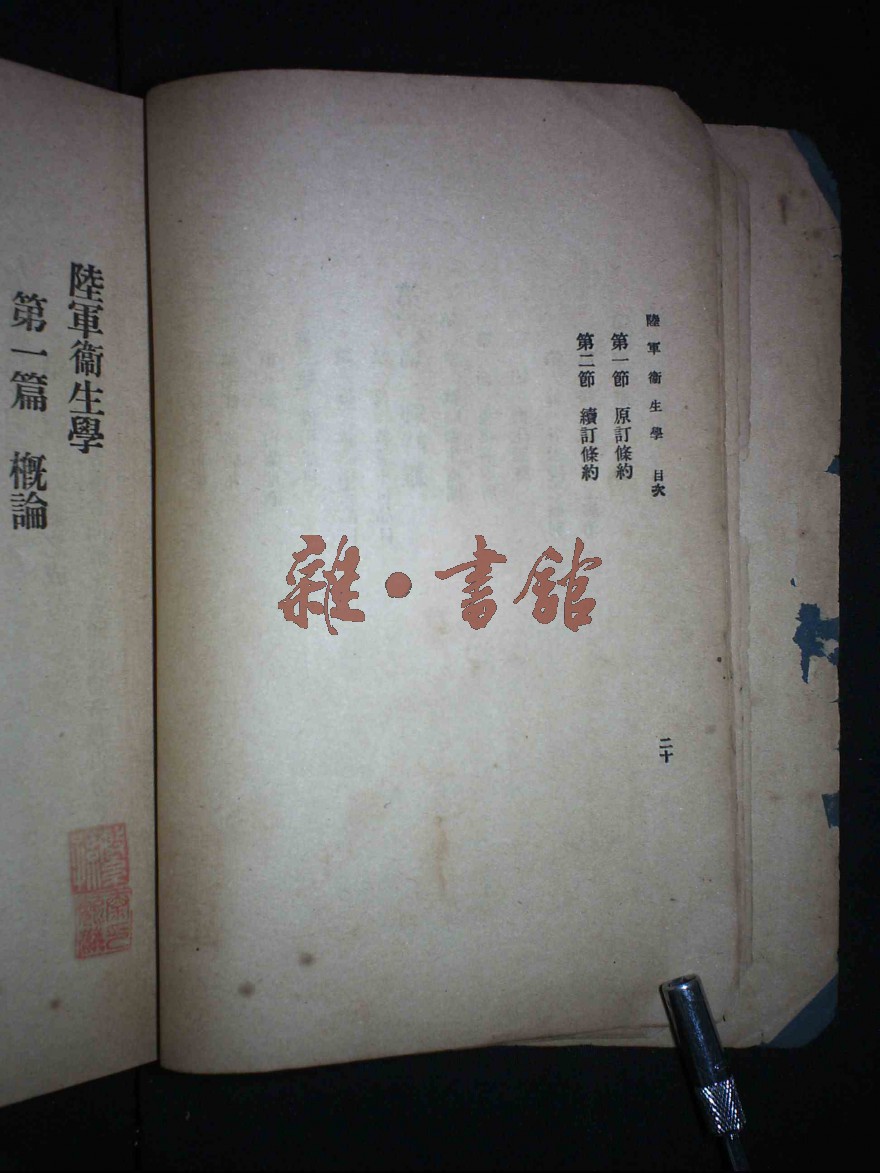 陸軍衞生學 目次
第一節 原訂條約
第二節 續訂條約
二十
陸軍衞生學
第一篇 概論
雜·書館